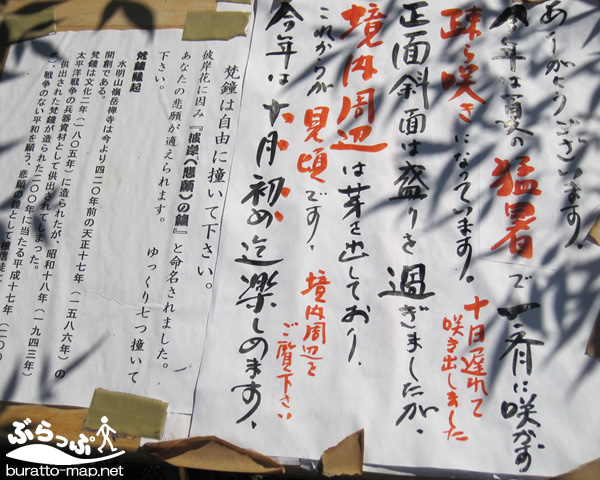 ありがとうございます。
今年は夏の猛暑で一斉に咲かず
疎ら咲きになっています。
十日遅れて
咲き出しました
正面斜面は盛りを過ぎましたが、
境内周辺は芽を出しており、
これからが見頃です。
境内周辺を
ご覧下さい
今年は十月初め迄楽しめます。
梵鐘は自由に撞いて下さい。
彼岸花に因み『彼岸(悲願)の鐘』と命名されました。
あなたの悲願が適えられます。
ゆっくり七つ撞いて
下さい。
梵鐘縁起
水明山嶺岳禅寺は今より四二〇年前の天正十七年(一五八六年)の
開創である。
梵鐘は文化二年(一八〇五年)に造られたが、昭和十八年(一九四三年)
太平洋戦争の兵器資材として供出されてしまった。
供出された梵鐘が造られ二〇〇年に当たる平成十七年(二〇〇
、戦争のない平和を願う、悲願の鐘として檀信徒に
ぶらっぷ
buratto-map.net